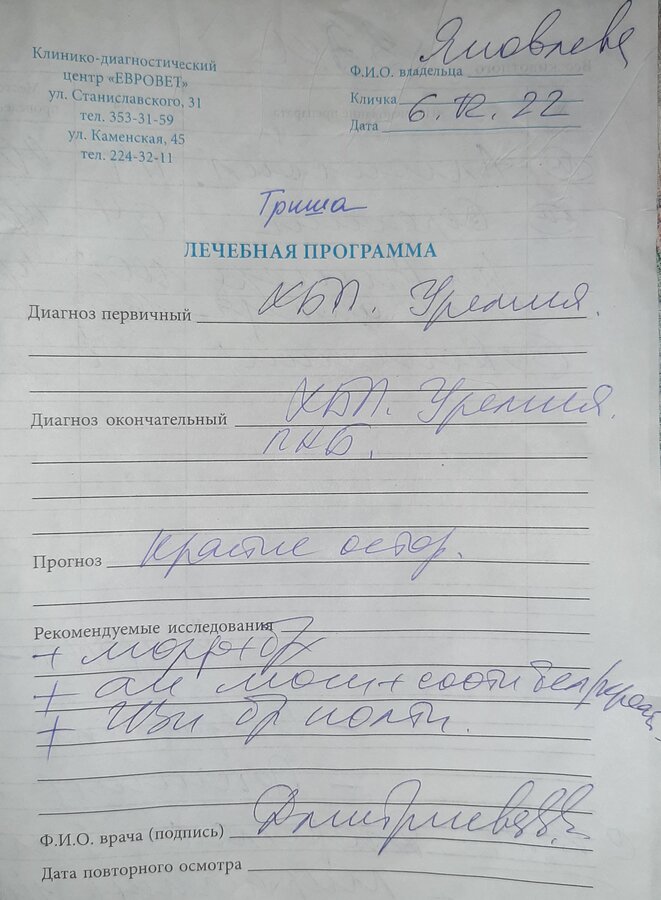 Клинико-диагностический
центр «ЕВРОВЕТ»
ул. Станиславского, 31
тел. 353-31-59
ул. Каменская, 45
тел. 224-32-11
Ф.И.О. владельца Яковлева
Кличка
Дата 6.12.22
Гриша
ЛЕЧЕБНАЯ ПРОГРАММА
Диагноз первичный ХБП. Уремия.
Диагноз окончательный ХБП. Уремия.
ПКБ.
Прогноз крайне остор.
Рекомендуемые исследования
+ морф+бх
+ ан мочи+соотн бел/креат
+ Узи бр полти.
Ф.И.О. врача (подпись) Дмитриева
Дата повторного осмотра